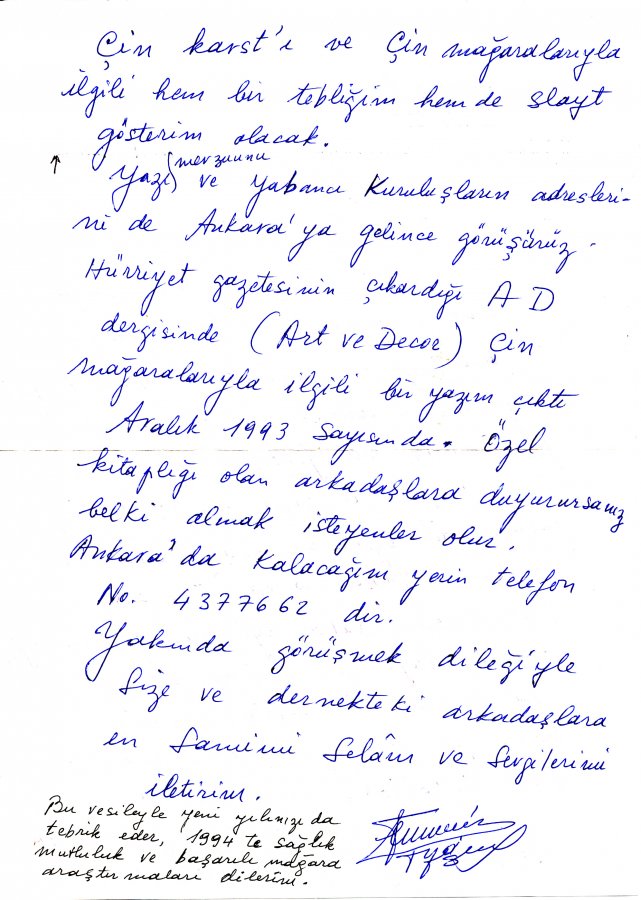 Çin karst'ı ve Çin mağaralarıyla
ilgili hem bir tebliğim hem de slayt
gösterim olacak.
Yazı (mevzuunu
ve yabancı kuruluşların adresleri-
ni de Ankara'ya gelince görüşürüz.
Hürriyet gazetesinin çıkardığı AD
dergisinde (Art ve Decor) Çin
mağaralarıyla ilgili bir yazım çıktı
Aralık 1993 sayısında. Özel
kitaplığı olan arkadaşlara duyurursanız
belki almak isteyenler olur.
Ankara'da kalacağım yerin telefon
No. 4377662 dir.
Yakında görüşmek dileğiyle
size ve dernekteki arkadaşlara
en samimi selâm ve sevgilerimi
iletirim.
Bu vesileyle yeni yılınızı da
tebrik eder, 1994 te sağlık
mutluluk ve başarılı mağara
araştırmaları dilerim.